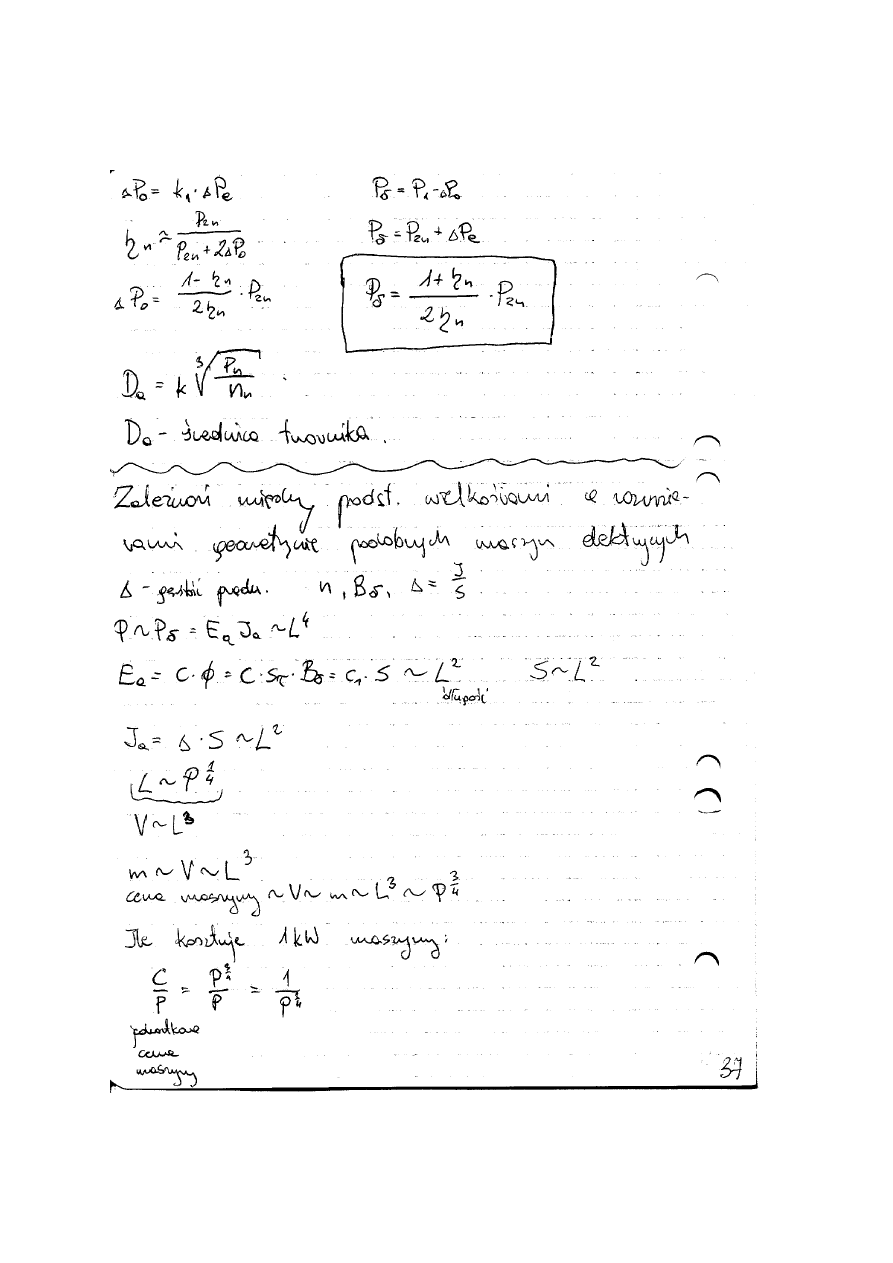 ΔP₀ = k₁·ΔPe    Pδ = P₁-ΔP₀
ηn ≈ P2n / (P2n + 2ΔP₀)    Pδ = P2n + ΔPe
ΔP₀ = (1-ηn) / (2ηn) · P2n    Pδ = (1+ηn) / (2ηn) · P2n
Da = k ∛(Pn / nn)
Da - średnica twornika.
Zależność między podst. wielkościami a rozmia-
rami geometrycznie podobnych maszyn elektrycznych
Δ - gęstość prądu.    n, Bδ, Δ = J/S
P ~ Pδ = Ea Ja ~ L⁴
Ea = C·ϕ = C·Sτ·Bδ = c₁·S ~ L²    S ~ L²
długość
Ja = Δ·S ~ L²
L ~ P^(1/4)
V ~ L³
m ~ V ~ L³
cena maszyny ~ V ~ m ~ L³ ~ P^(3/4)
Ile kosztuje 1kW maszyny:
C/P = P^(3/4)/P = 1/P^(1/4)
jednostkowa
cena
maszyny
37